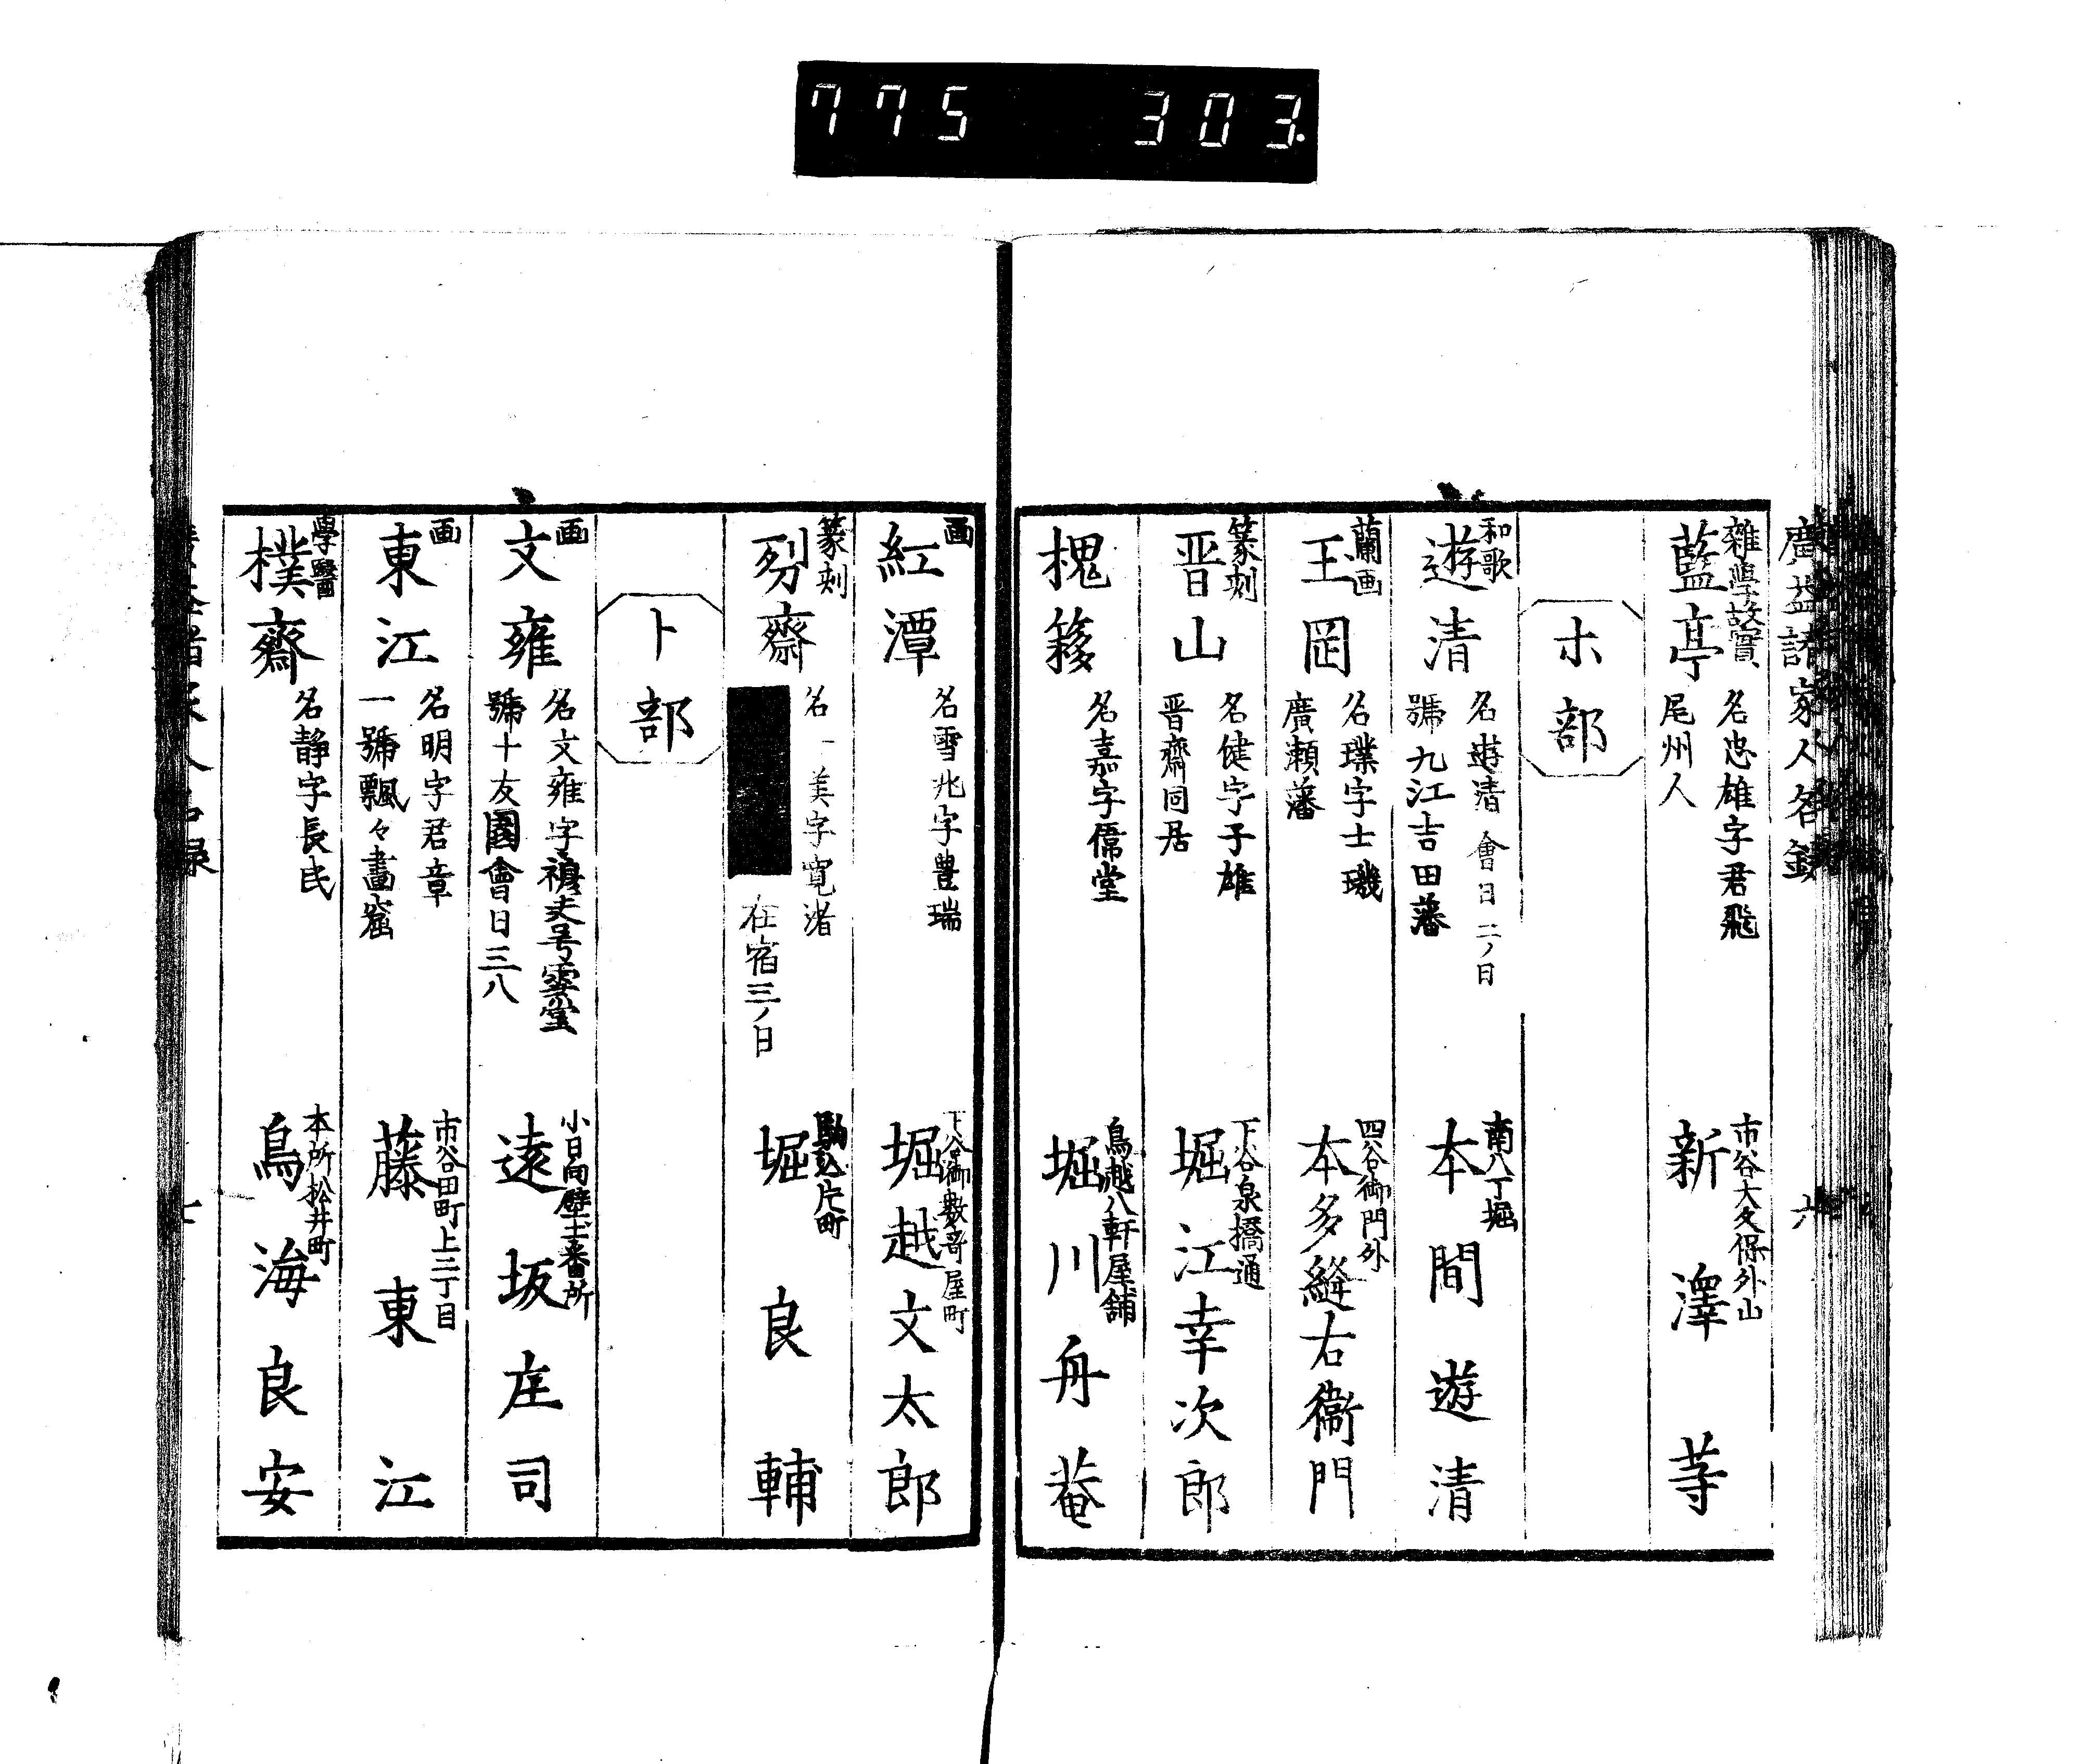 775 303.
廣益諸家人名錄
雜學故實
藍亭
名忠雄字君飛
尾州人
市谷大久保外山
新澤䓁
ホ部
和歌
遊清
名遊清 會日二ノ日
號九江吉田藩
南八丁堀
本間遊清
蘭画
王岡
名璞字士璣
廣瀬藩
四谷御門外
本多縫右衞門
篆刻
晋山
名健字子雄
晋齋同居
下谷泉橋通
堀江幸次郎
槐簃
名嘉字儒堂
鳥越八軒屋舗
堀川舟菴
六
画
紅潭
名雪兆字豊瑞
下谷御數寄屋町
堀越文太郎
篆刻
剡齋
名一美字寛渚
在宿三ノ日
駒込片町
堀良輔
ト部
画
文雍
名文雍字穆夫号雲堂
號十友園會日三八
小日向壁土番所
遠坂庄司
画
東江
名明字君章
一號飄々畫窟
市谷田町上二丁目
藤東江
學醫
樸齋
名静字長民
本所松井町
鳥海良安
七